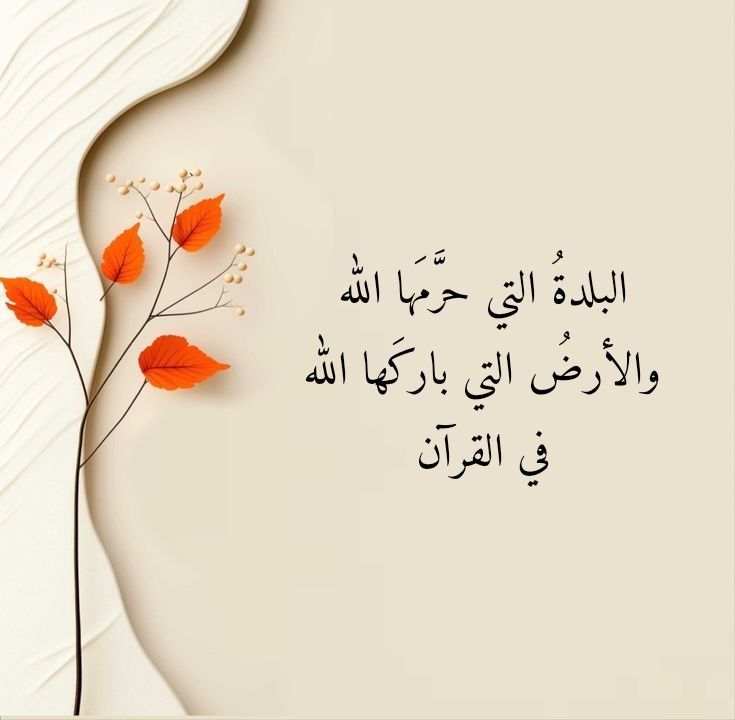 البلدةُ التي حرَّمَها الله
والأرضُ التي باركَها الله
في القرآن